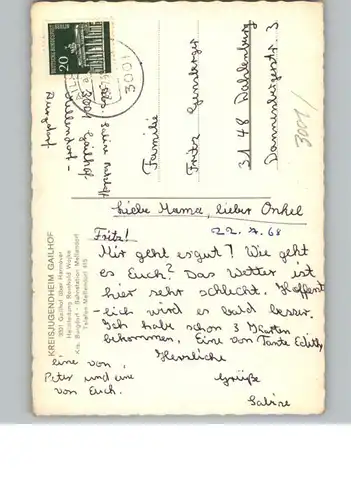 Liebe Mama, lieber Onkel
22.7.68
Fritz!
Mir geht es gut! Wie geht
es Euch? Das Wetter ist
hier sehr schlecht. Hoffent
lich wird es bald besser.
Ich habe schon 3 Karten
bekommen. Eine von Tante Edith,
eine von
Peter und eine
von Euch.
Herzliche
Grüße
Sabine
Familie
Fritz
3148 Dahlenburg
Dannenbergerstr. 3
3001/
3001
20
DEUTSCHE BUNDESPOST
BERLIN
3001 Gailhof
KREISJUGENDHEIM GAILHOF
3001 Gailhof über Hannover
Kra. Burgdorf - Bahnstation Mellendorf
Telefon Mellendorf 415